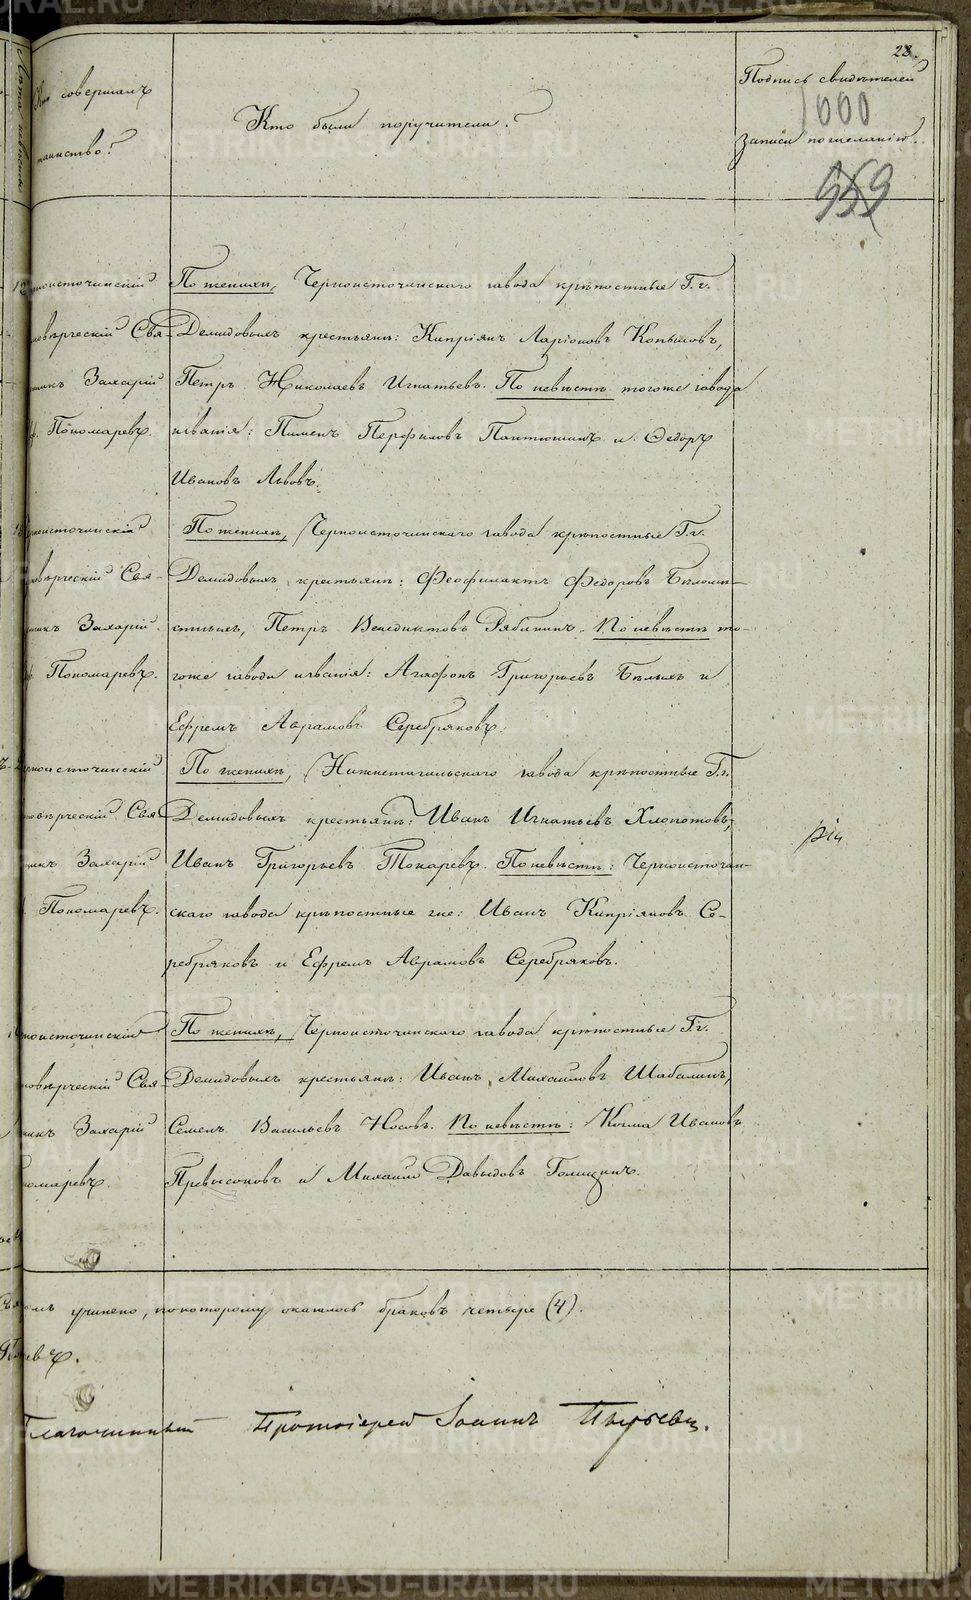 28.
Кто совершалъ
таинство?
Кто были поручители?
Подпись свидѣтелей
записи по желанію.
1000
959
Черноисточинскій
Единовѣрческій Свя-
щенникъ Захарій
Пономаревъ.
По женихѣ, Черноисточинскаго завода крѣпостные Г.г.
Демидовыхъ крестьяне: Кипріянъ Ларіоновъ Копыловъ,
Петръ Николаевъ Игнатьевъ. По невѣстѣ тогоже завода
и званія: Пименъ Перфиловъ Пантюшинъ и Ѳедоръ
Ивановъ Львовъ.
Черноисточинскій
Единовѣрческій Свя-
щенникъ Захарій
Пономаревъ.
По женихѣ, Черноисточинскаго завода крѣпостные Г.г.
Демидовыхъ крестьяне: Феофилактъ Федоровъ
Петръ Венедиктовъ Рябининъ. По невѣстѣ то-
гоже завода и званія: Агафонъ Григорьевъ Бѣлыхъ и
Ефремъ Аврамовъ Серебряковъ.
Черноисточинскій
Единовѣрческій Свя-
щенникъ Захарій
Пономаревъ.
По женихѣ, Нижнетагильскаго завода крѣпостные Г.г.
Демидовыхъ крестьяне: Иванъ Игнатьевъ Хлопотовъ,
Иванъ Григорьевъ Токаревъ. По невѣстѣ: Черноисточин-
скаго завода крѣпостные же: Иванъ Кипріяновъ Се-
ребряковъ и Ефремъ Аврамовъ Серебряковъ.
Черноисточинскій
Единовѣрческій Свя-
щенникъ Захарій
Пономаревъ.
По женихѣ, Черноисточинскаго завода крѣпостные Г.г.
Демидовыхъ крестьяне: Иванъ Михайловъ Шабалинъ,
Семенъ Васильевъ Носовъ. По невѣстѣ: Козма Ивановъ
и Михайло Давыдовъ Голицинъ.
учинено, по которому оказалось браковъ четыре (4).
Благочинный Протоіерей Іоаннъ Пырьевъ.
METRIKI.GASO-URAL.RU